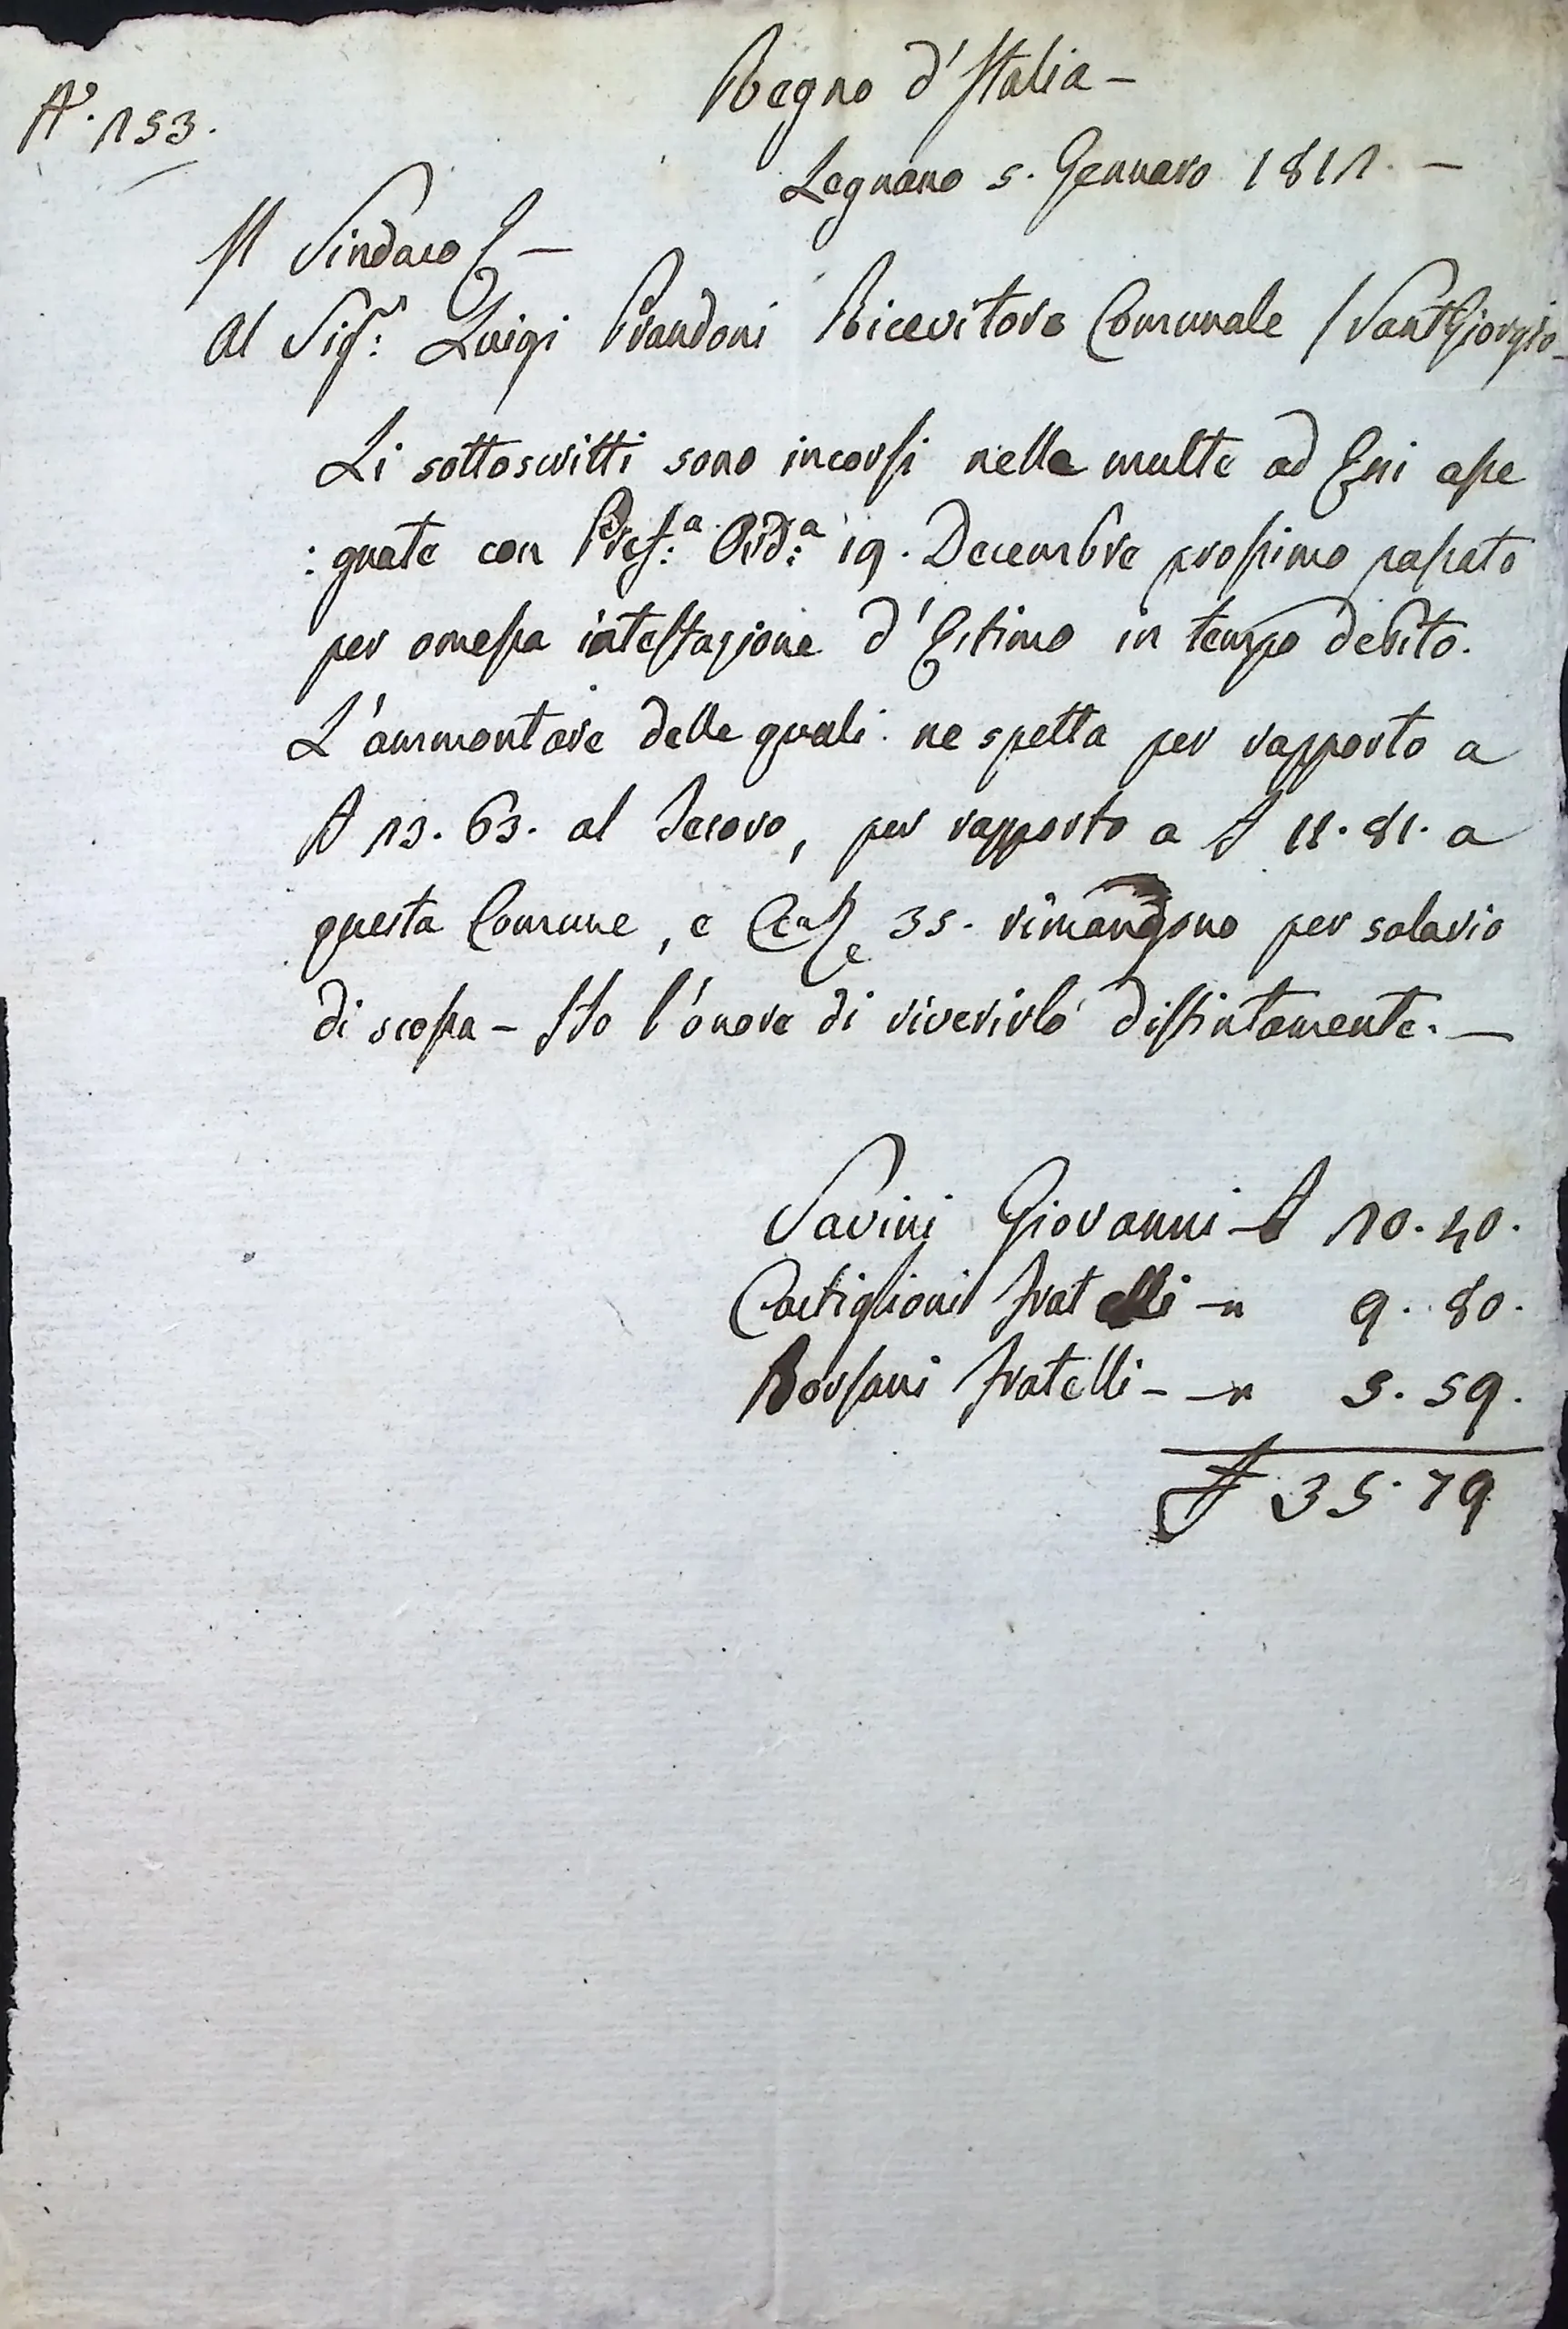 N°. 153.
Regno d'Italia -
Legnano 5. Gennaro 1811. -
Il Sindaco
Al Sig.r Luigi Prandoni Ricevitore Comunale / SantGiorgio -
Li sottoscritti sono incorsi nelle multe ad Essi asse
: gnate con Pref.a Ord.a 19. Decembre prossimo passato
per omessa intestazione d'Estimo in tempo debito.
L'ammontare delle quali ne spetta per rapporto a
£ 13. 63. al Tesoro, per rapporto a £ 11. 81. a
questa Comune, e 35. rimangono per salario
di scossa - Ho l'onore di riverirlo distintamente. -
Savini Giovanni - £ 10. 40.
Castiglioni Fratelli - " 9. 80.
Borsani Fratelli - - " 5. 59.
£ 35. 79